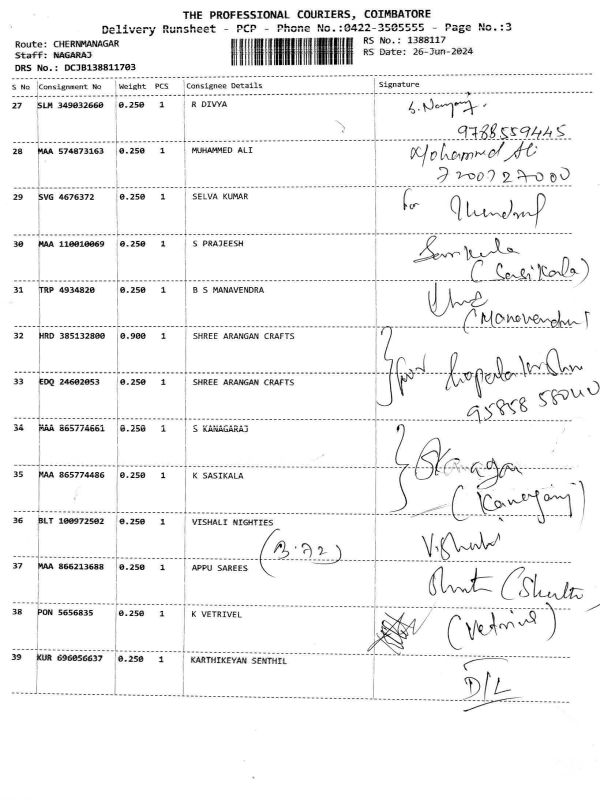 THE PROFESSIONAL COURIERS, COIMBATORE
Delivery Runsheet - PCP - Phone No.:0422-3505555 - Page No.:3
Route: CHERNMANAGAR RS No.: 1388117
Staff: NAGARAJ RS Date: 26-Jun-2024
DRS No.: DCJB138811703
S No Consignment No Weight PCS Consignee Details Signature
27 SLM 349032660 0.250 1 R DIVYA
9788559445
28 MAA 574873163 0.250 1 MUHAMMED ALI Mohammed Ali
7200727000
29 SVG 4676372 0.250 1 SELVA KUMAR for
30 MAA 110010069 0.250 1 S PRAJEESH
(Sasikala)
31 TRP 4934820 0.250 1 B S MANAVENDRA
32 HRD 385132800 0.900 1 SHREE ARANGAN CRAFTS
33 EDQ 24602053 0.250 1 SHREE ARANGAN CRAFTS
34 MAA 865774661 0.250 1 S KANAGARAJ
35 MAA 865774486 0.250 1 K SASIKALA
36 BLT 100972502 0.250 1 VISHALI NIGHTIES
(B.72)
37 MAA 866213688 0.250 1 APPU SAREES
38 PON 5656835 0.250 1 K VETRIVEL
39 KUR 696056637 0.250 1 KARTHIKEYAN SENTHIL
D/L